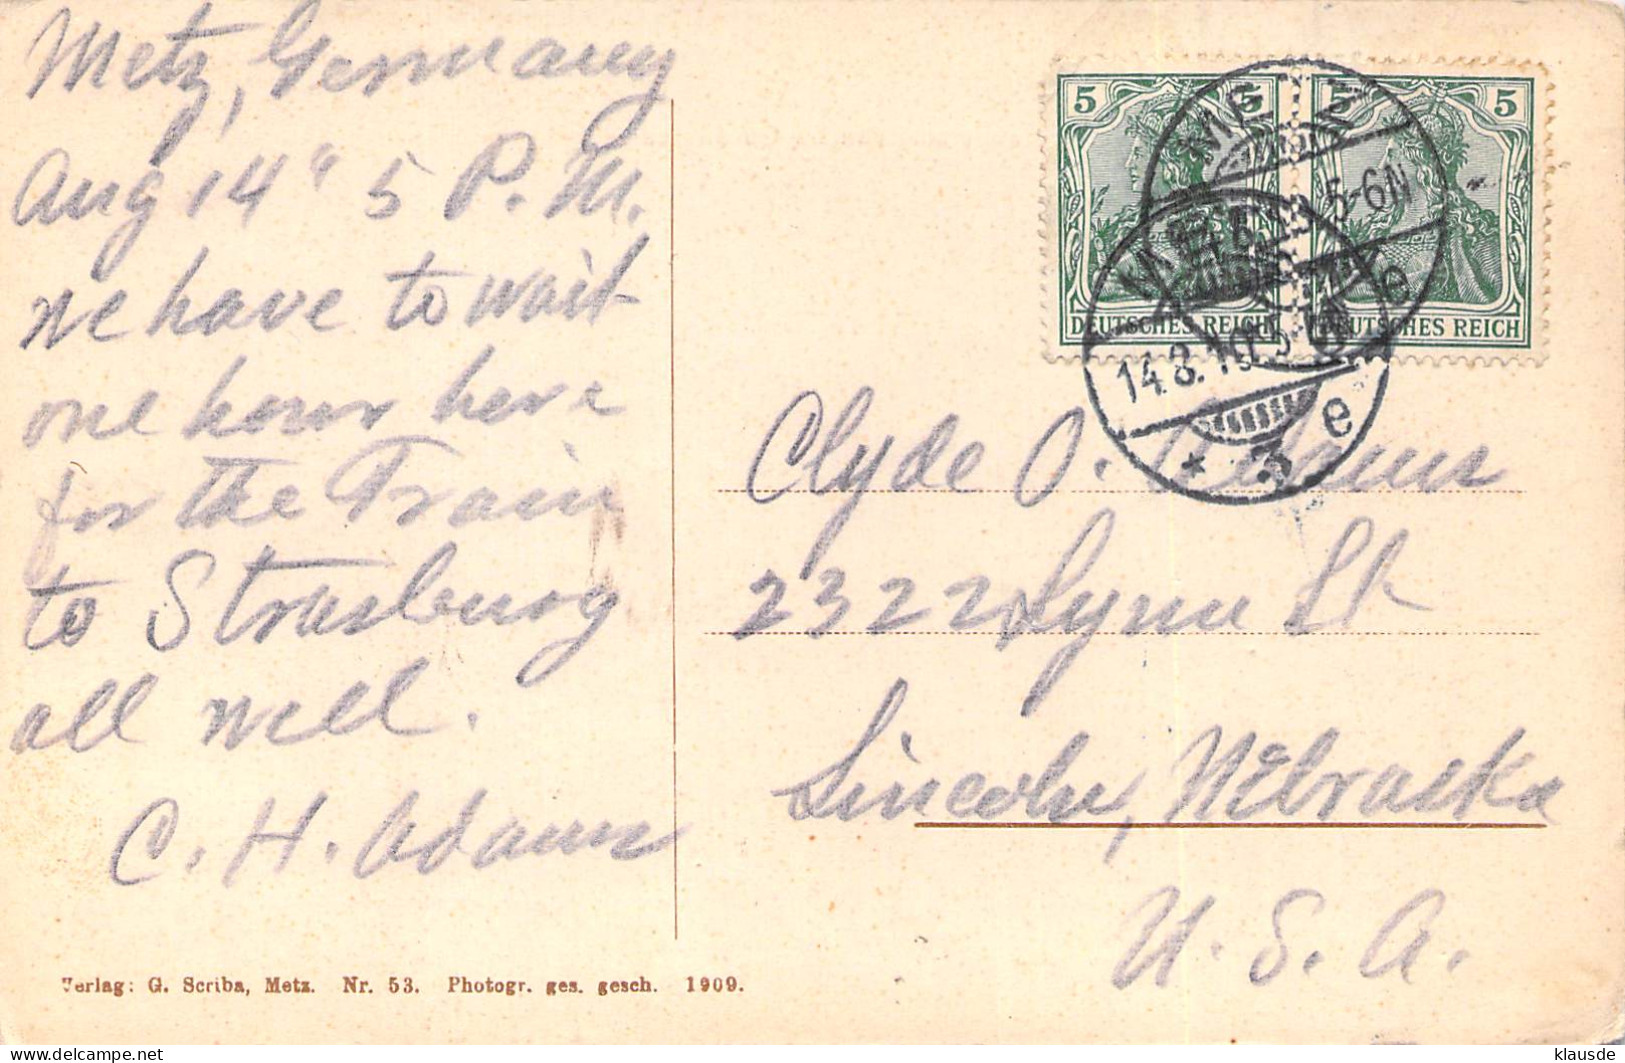 Metz, Germany
Aug 14" 5 P. M.
we have to wait
one hour here
for the Train
to Strasburg
all well.
C. H. Adams
5
5
5
DEUTSCHES REICH
DEUTSCHES REICH
METZ
5-6N
e
METZ
14.8.10.5-6N
* 3 e
Clyde O. Adams
2322 Lynn St
Lincoln, Nebraska
U. S. A.
Verlag: G. Scriba, Metz. Nr. 53. Photogr. ges. gesch. 1909.
klausde